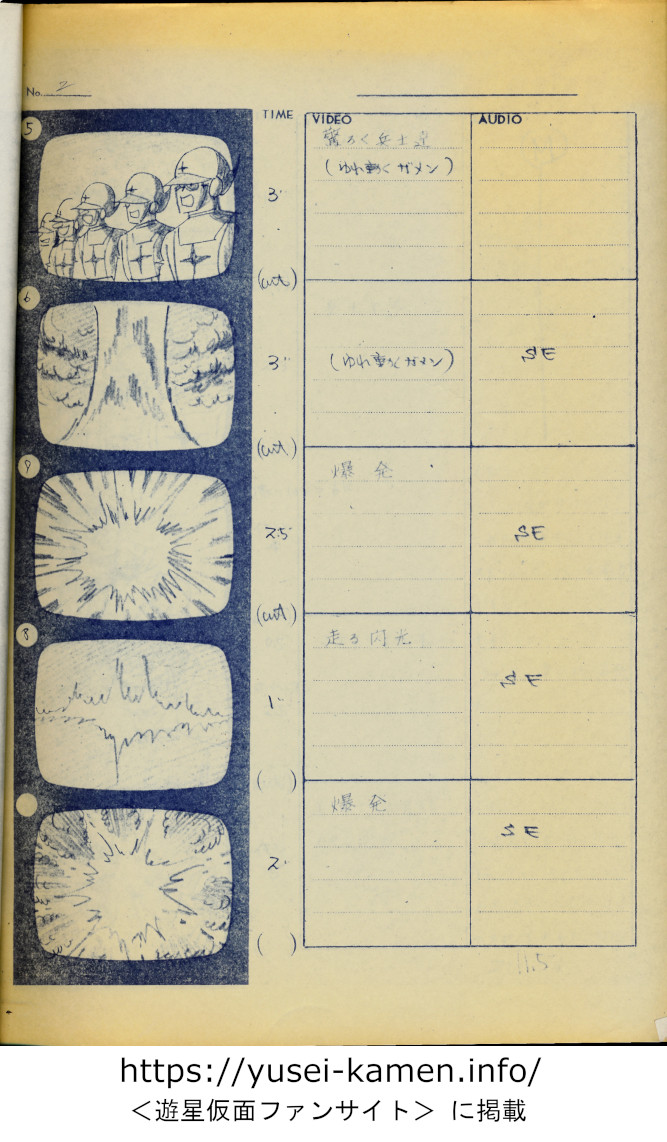 No. 2
TIME VIDEO AUDIO
5
3"
驚ろく兵士達
(ゆれ動くガメン)
(cut)
6
3"
(ゆれ動くガメン)
SE
(cut)
7
2.5"
爆発
SE
(cut)
8
1"
走る閃光
SE
( )
2"
爆発
SE
( )
11.5
https://yusei-kamen.info/
＜遊星仮面ファンサイト＞ に掲載